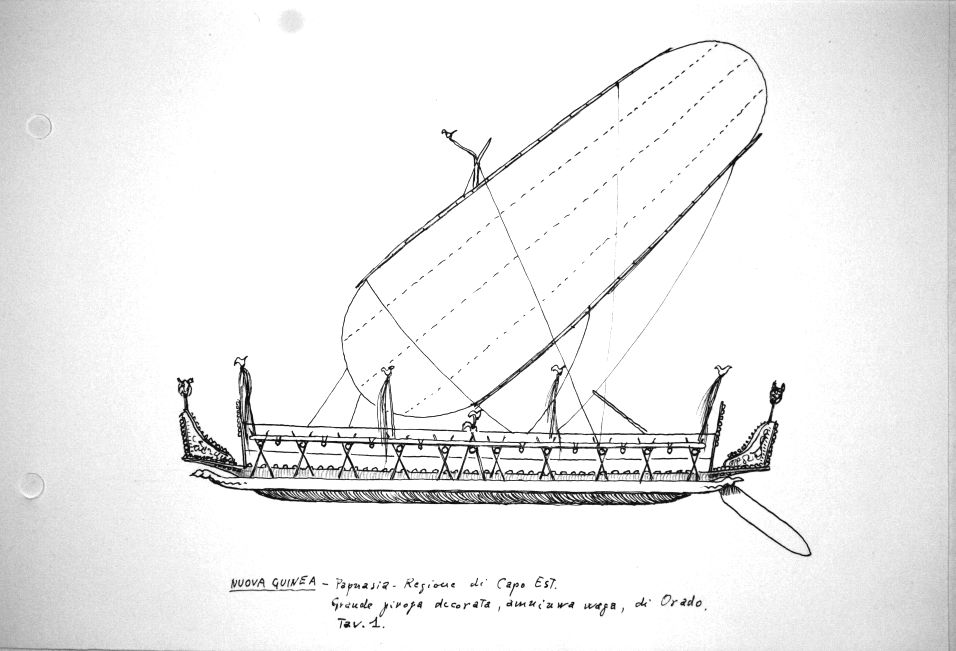 NUOVA GUINEA - Papuasia - Regione di Capo EST.
Grande piroga decorata, amuiuwa waga, di Orado.
Tav. 1.